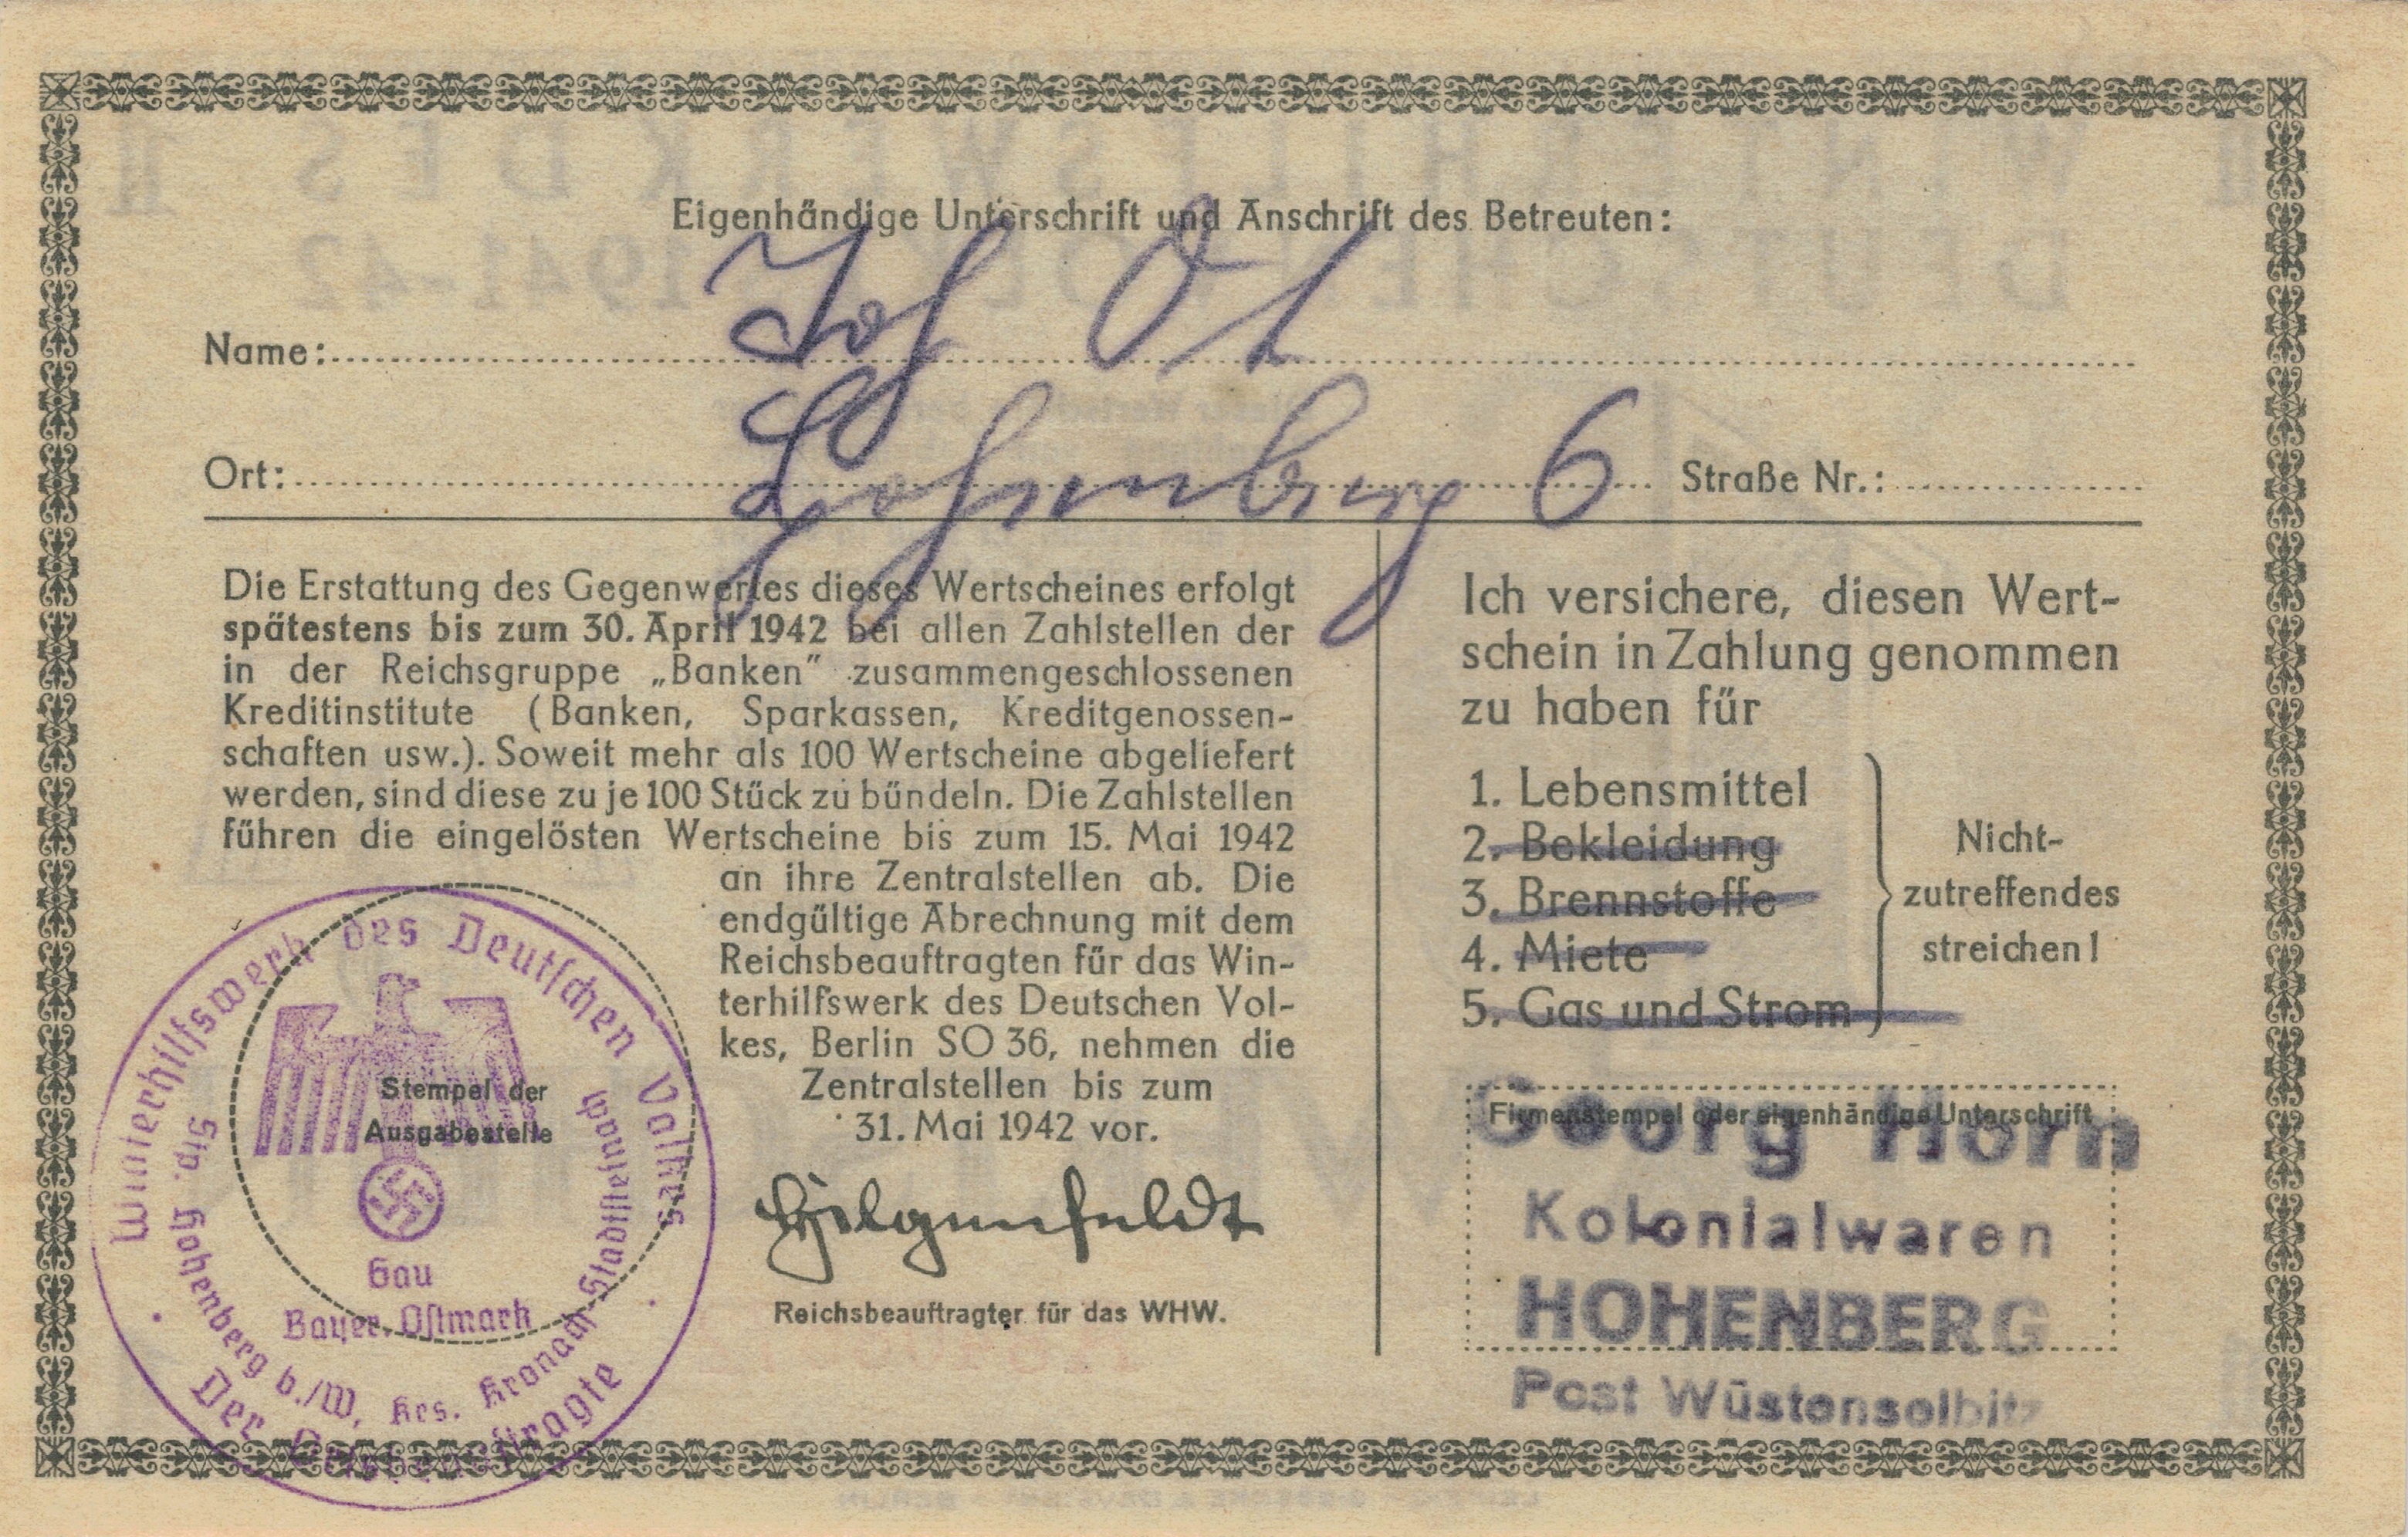 Eigenhändige Unterschrift und Anschrift des Betreuten:
Name: Joh Ot
Ort: Hohenberg 6 Straße Nr.:
Die Erstattung des Gegenwertes dieses Wertscheines erfolgt
spätestens bis zum 30. April 1942 bei allen Zahlstellen der
in der Reichsgruppe „Banken" zusammengeschlossenen
Kreditinstitute (Banken, Sparkassen, Kreditgenossen-
schaften usw.). Soweit mehr als 100 Wertscheine abgeliefert
werden, sind diese zu je 100 Stück zu bündeln. Die Zahlstellen
führen die eingelösten Wertscheine bis zum 15. Mai 1942
an ihre Zentralstellen ab. Die
endgültige Abrechnung mit dem
Reichsbeauftragten für das Win-
terhilfswerk des Deutschen Vol-
kes, Berlin SO 36, nehmen die
Zentralstellen bis zum
31. Mai 1942 vor.
Hilgenfeldt
Reichsbeauftragter für das WHW.
Winterhilfswerk des Deutschen Volkes
Stempel der
Ausgabestelle
Gau
Bayer. Ostmark
Hohenberg b./W. Krs. Kronach-Stadtsteinach
Der Ortsbeauftragte
Ich versichere, diesen Wert-
schein in Zahlung genommen
zu haben für
1. Lebensmittel
2. Bekleidung
3. Brennstoffe
4. Miete
5. Gas und Strom
Nicht-
zutreffendes
streichen!
Firmenstempel oder eigenhändige Unterschrift
Georg Horn
Kolonialwaren
HOHENBERG
Post Wüstenselbitz